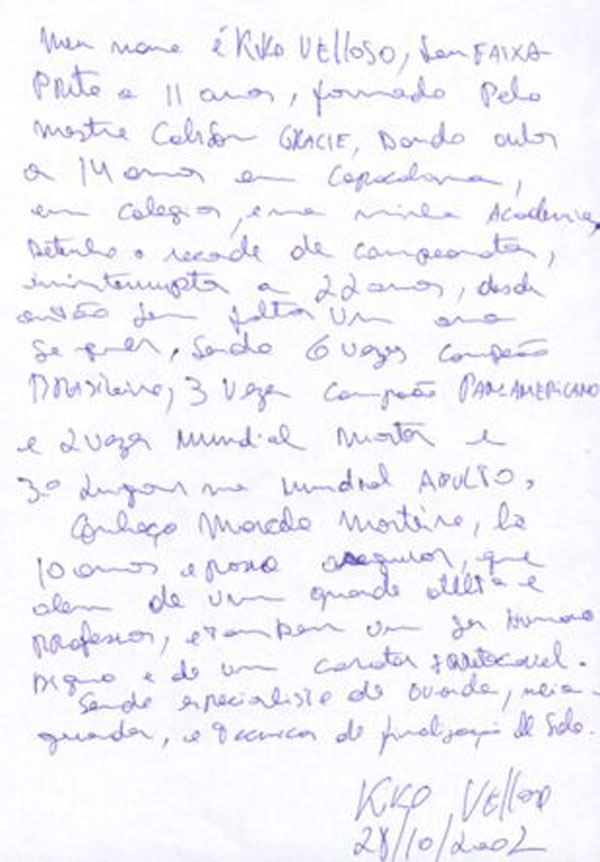 Meu nome é Kiko Velloso, sou FAIXA
Preta a 11 anos, formado Pelo
mestre Carlson GRACIE, Dando aulas
a 14 anos em Copacabana,
em Colegios, e na minha Academia,
Detenho o recorde de campeonatos,
ininterruptos a 22 anos, desde
então sem faltar Um ano
Se quer, Sendo 6 vezes campeão
Brasileiro, 3 vezes campeão PANAMERICANO
e 2 vezes Mundial Master e
3º Lugar no Mundial ADULTO,
Conheço Marcelo Monteiro, ha
10 anos e posso assegurar, que
alem de um grande atleta e
professor, e tambem um ser Humano
Digno e de um carater
Sendo especialista de Guarda, meia-
guarda, e tecnicas de finalização de Solo.
Kiko Velloso
28/10/2002